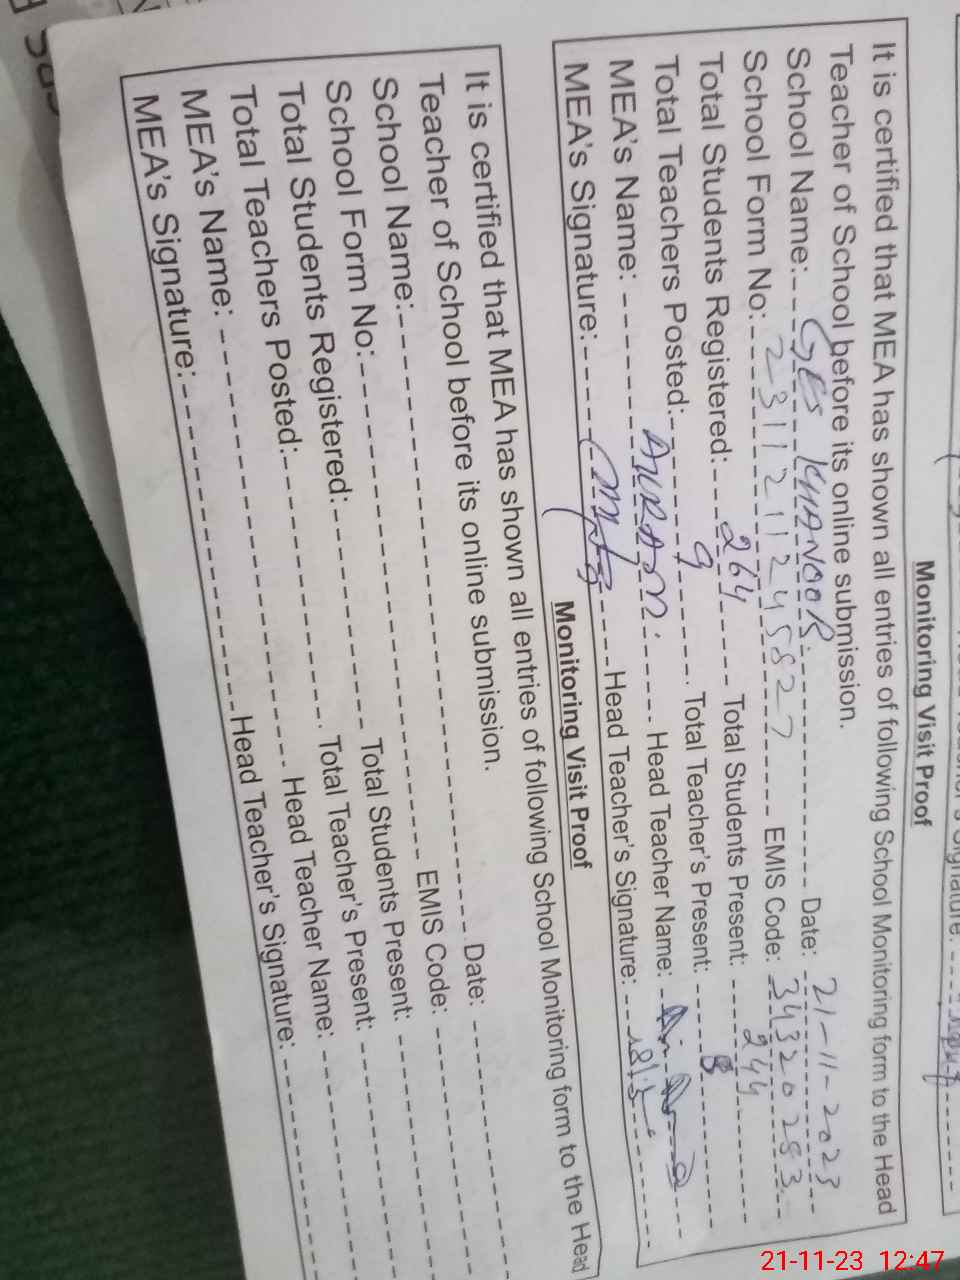 Monitoring Visit Proof
It is certified that MEA has shown all entries of following School Monitoring form to the Head
Teacher of School before its online submission.
School Name: GES KHANOOR. Date: 21-11-2023
School Form No: 2-3112112455827 EMIS Code: 34320283
Total Students Registered: 264 Total Students Present: 244
Total Teachers Posted: 9 Total Teacher's Present: 8
MEA's Name: Head Teacher Name:
MEA's Signature: Head Teacher's Signature:
Monitoring Visit Proof
It is certified that MEA has shown all entries of following School Monitoring form to the Head
Teacher of School before its online submission.
School Name: Date:
School Form No: EMIS Code:
Total Students Registered: Total Students Present:
Total Teachers Posted: Total Teacher's Present:
MEA's Name: Head Teacher Name:
MEA's Signature: Head Teacher's Signature:
21-11-23 12:47